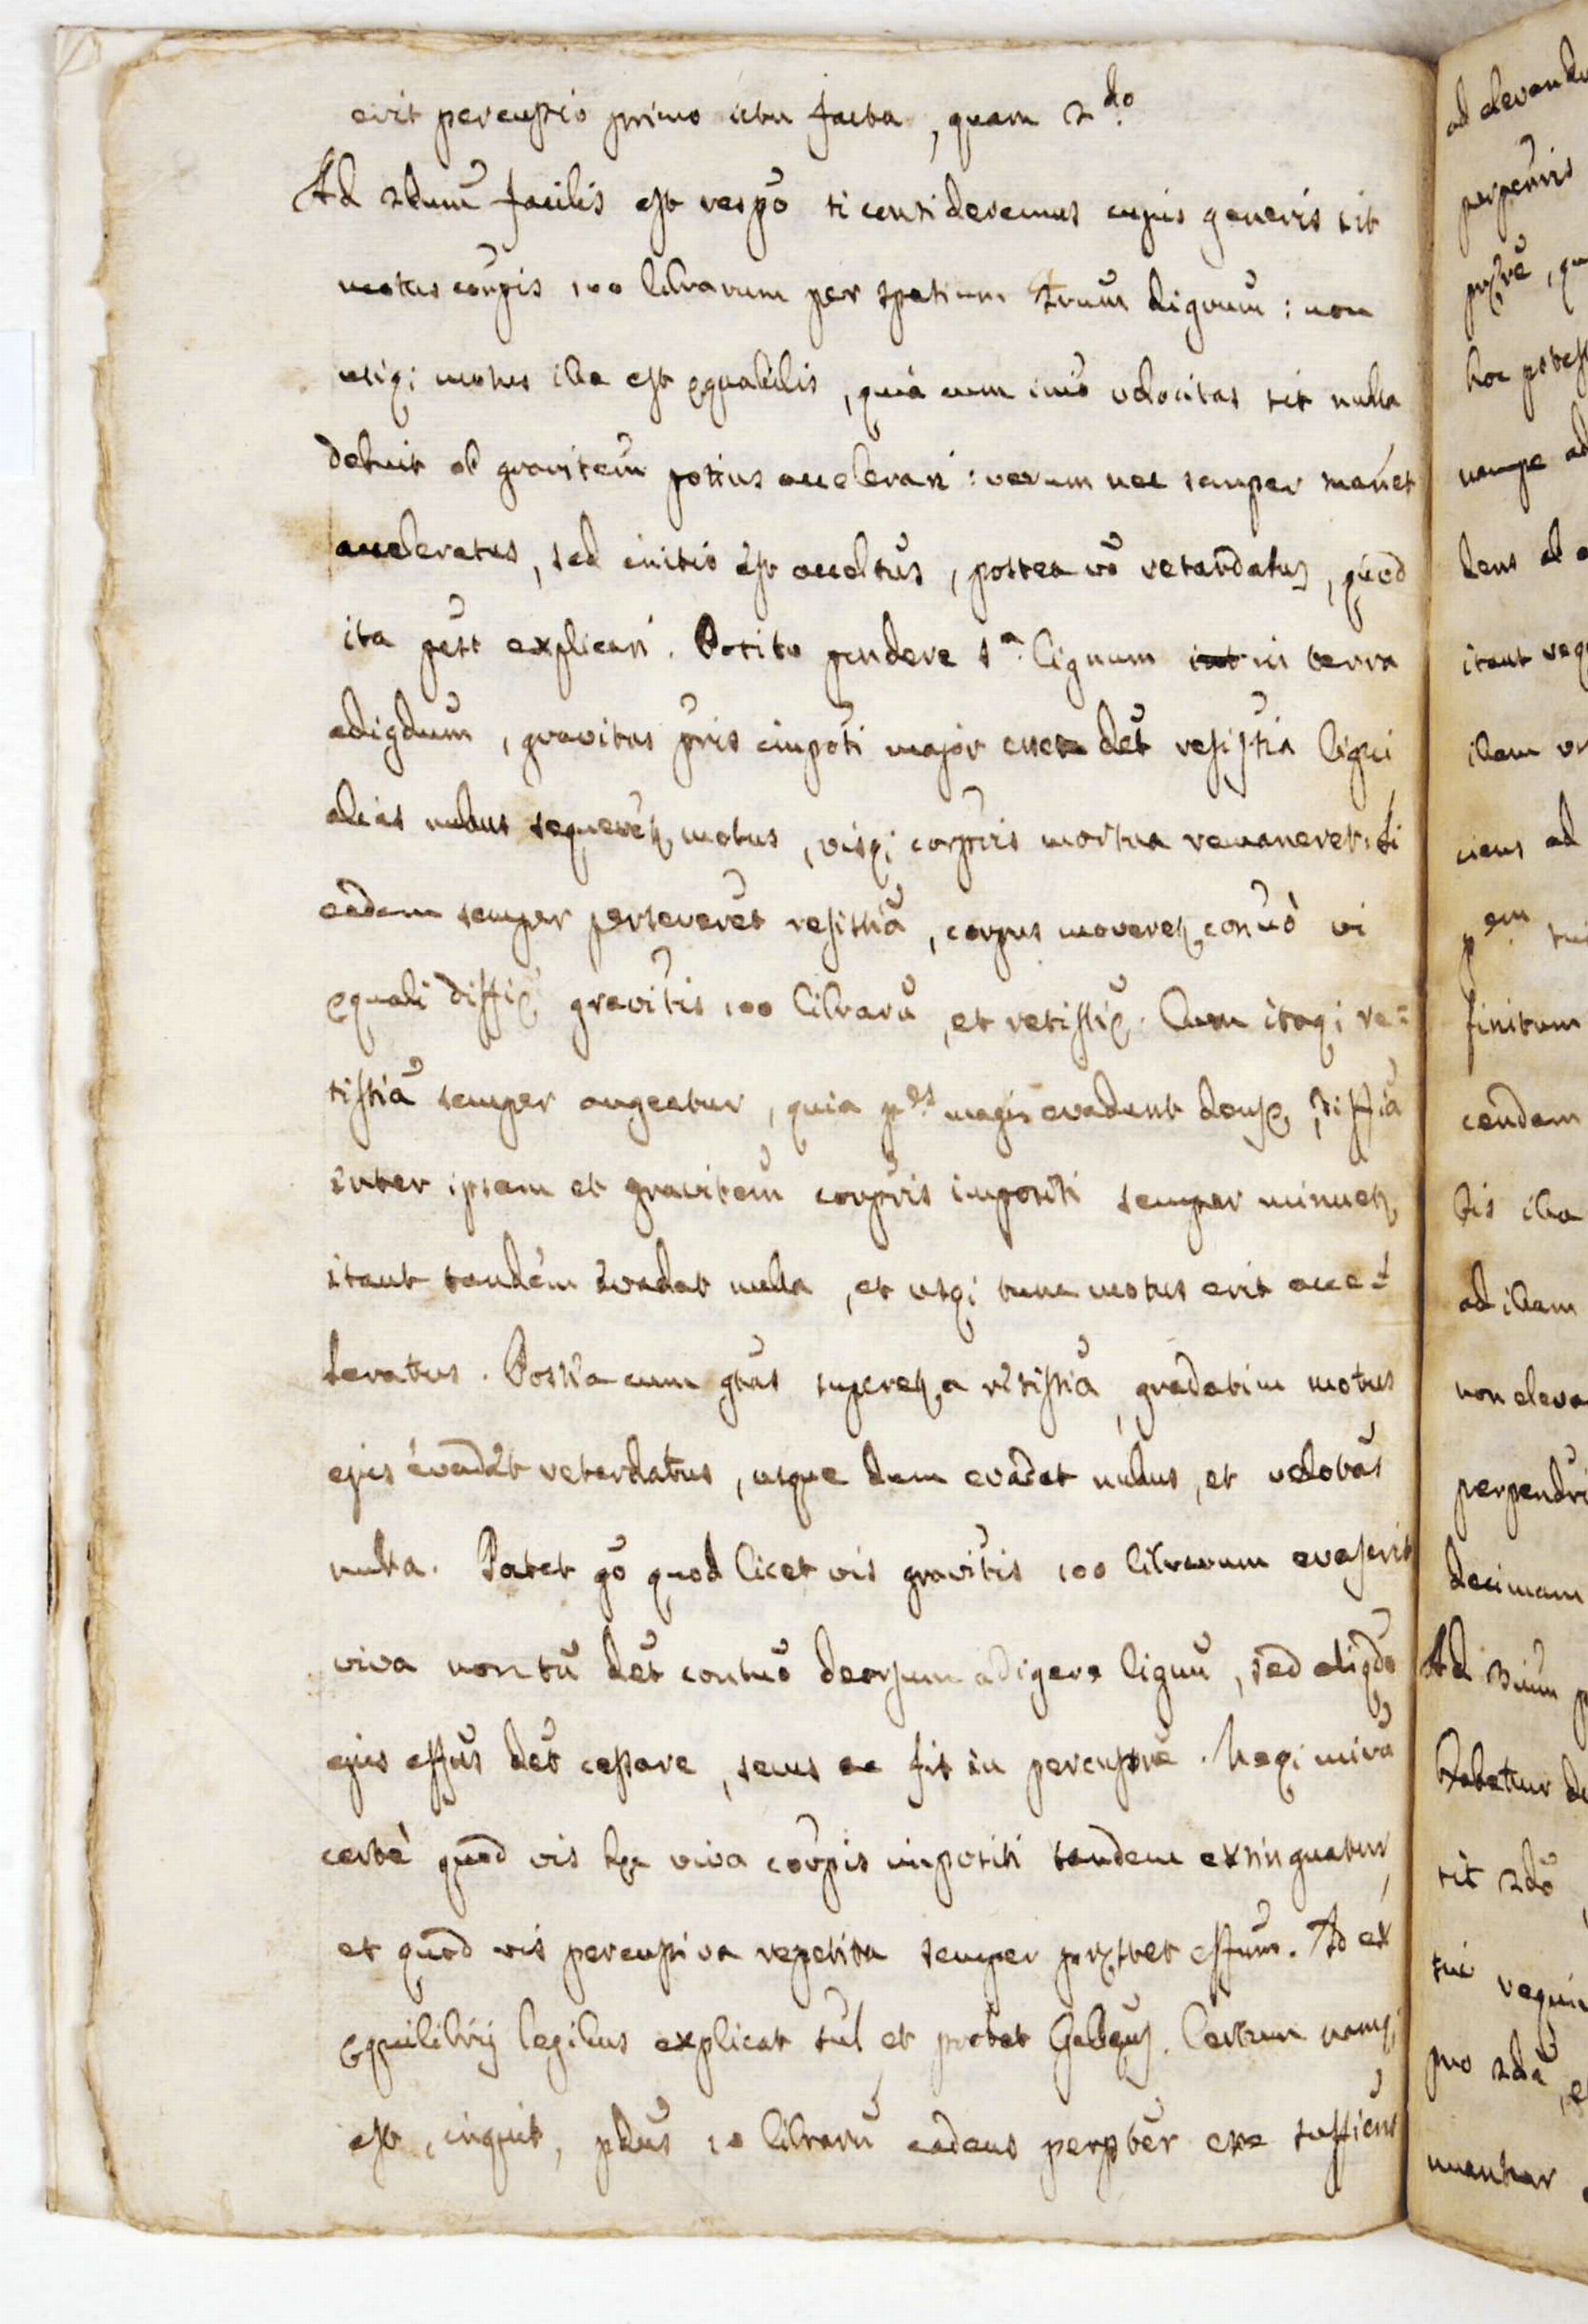 erit percussio primo ictu facta, quam 2.do
Ad 2dum facilis est respō si consideremus cujus generis sit
motus corpis 100 librarum per spatium lignum : non
usiq; motus ille est equabilis, quia cum velocitas sit nulla
debuit ob gravitem potius accelerari : verum nec semper manet
acceleratus, sed initio est acceltus, postea vō retardatus, quod
ita pest explicari. Posito pendere 1.a lignum in terra
adigdum, gravitas pris impoti major esse det resistia ligni
alias nullus sequeretz motus, visq; corpris mortua remaneret : si
eadem semper perseveret resistia, corpus moveretz contuō vi
equali diffie gravitis 100 librarū, et resistie. Cum itaq; re=
sistia semper augeatur, quia p.es magis evadunt dense, diffia
inter ipsam et gravitem corpris impositi semper minuetz
itaut tandem evadat nulla, et usq; tunc motus erit acce=
leratus. Postea cum gtas superetz a resistia, gradatim motus
ejus evadat retardatus, usque dum evadat nullus, et velotas
nulla. Patet gō quod licet vis gravitis 100 librarum evaserit
viva non tū det contuō deorsum adigere lignū, sed aliqdo
ejus effus det cessare, secus ac fit in percussre. Neq; mirū
certè quod vis hec viva corpis impositi tandem extinguatur,
et quod vis percussiva repetita semper prestet effum. Id ex
equilibrij legibus explicat sul et probat Galeus. Certum namq;
est, inquit, pdus 10 librarū cadens perpber esse sufficiens
ad elevandu
perpenris
hoc potest
nempe ad
dens ad
itaut
illam
ciens ad
p.em
finitum
cendam
bis illa
ad illam
non eleva
perpendri
decimam
Ad 3ium
Habetur de
sit 2do
sui
pro 2da, et